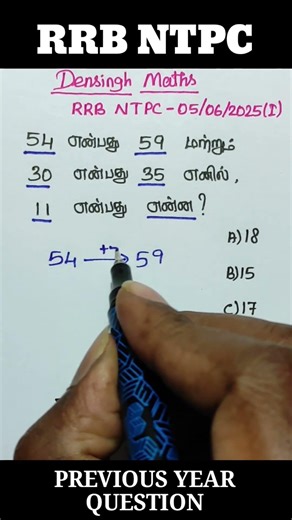 RRB NTPC
Densingh Maths
RRB NTPC - 05/06/2025(I)
54 என்பது 59 மற்றும்
30 என்பது 35 எனில்,
11 என்பது என்ன?
A) 18
54 → 59
B) 15
C) 17
PREVIOUS YEAR
QUESTION